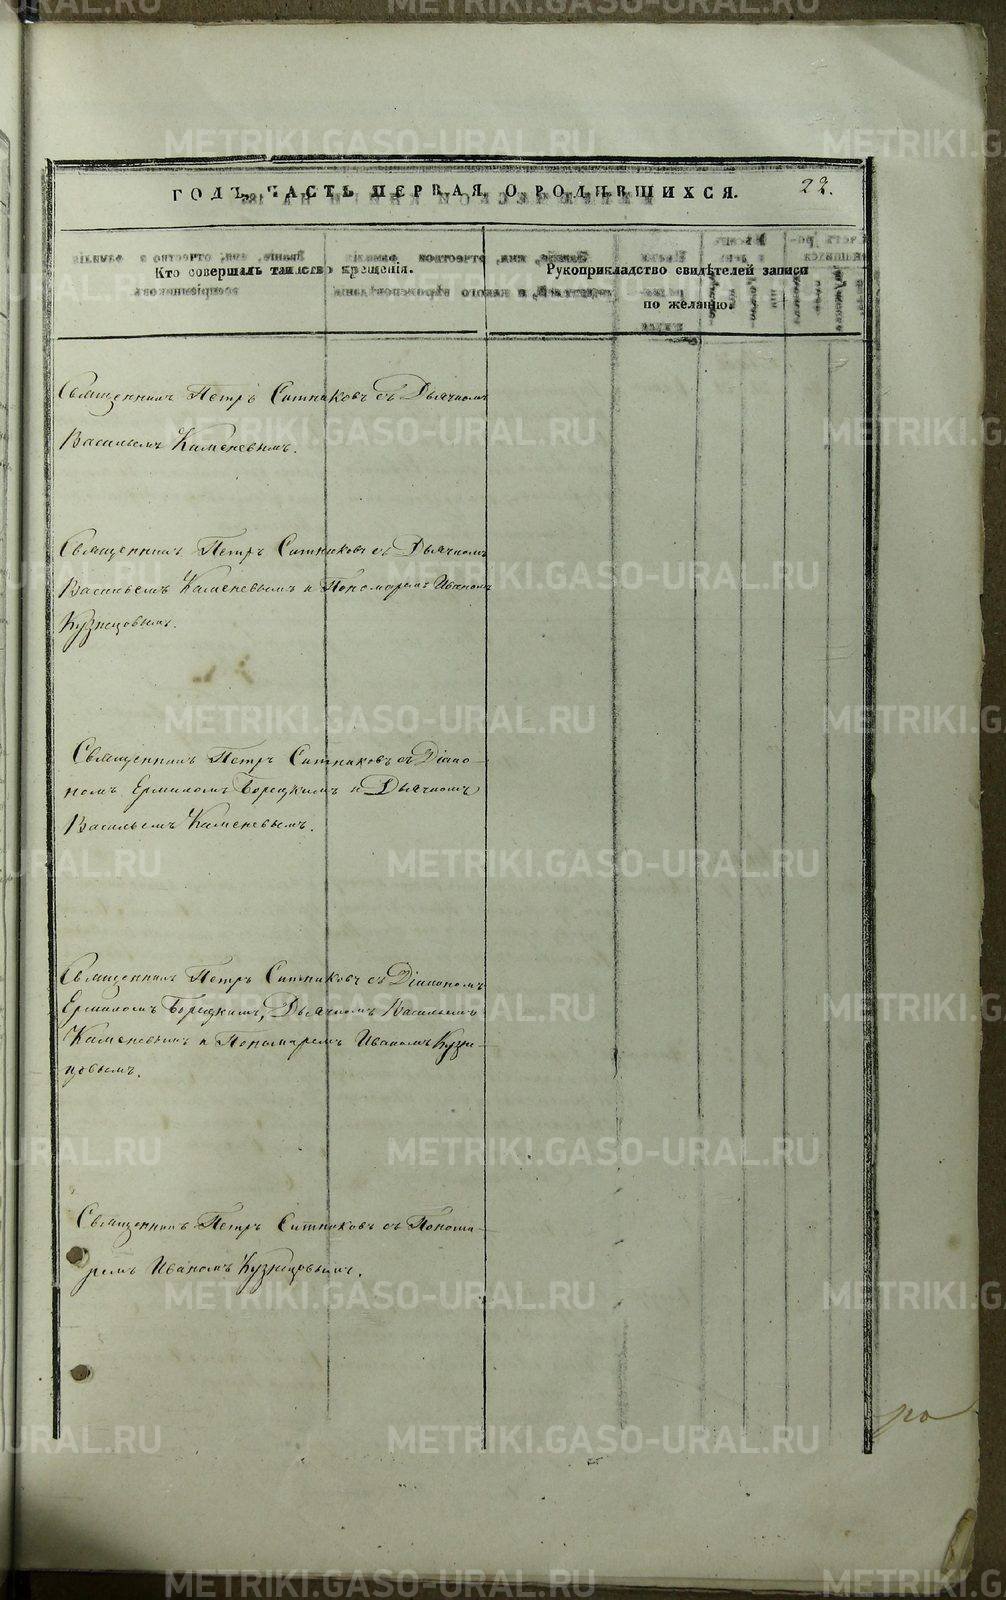 ГОДЪ, ЧАСТЬ ПЕРВАЯ, О РОДИВШИХСЯ. 22.
Кто совершалъ таинство крещенія.
Рукоприкладство свидѣтелей записи
по желанію.
Священникъ Петръ Ситниковъ съ Дьячкомъ
Васильемъ Каменевымъ.
Священникъ Петръ Ситниковъ съ Дьячкомъ
Васильемъ Каменевымъ и Пономаремъ Иваномъ
Кузнецовымъ.
Священникъ Петръ Ситниковъ съ Діако-
номъ Ермиломъ Борецкимъ и Дьячкомъ
Васильемъ Каменевымъ.
Священникъ Петръ Ситниковъ съ Діакономъ
Ермиломъ Борецкимъ, Дьячкомъ Васильемъ
Каменевымъ и Пономаремъ Иваномъ Кузне-
цовымъ.
Священникъ Петръ Ситниковъ съ Понома-
ремъ Иваномъ Кузнецовымъ.
ро
METRIKI.GASO-URAL.RU